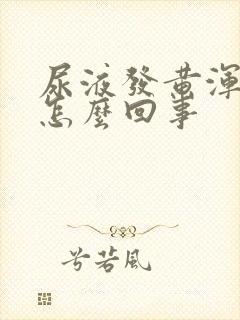 尿液發黃渾
怎麼回事
兮若風